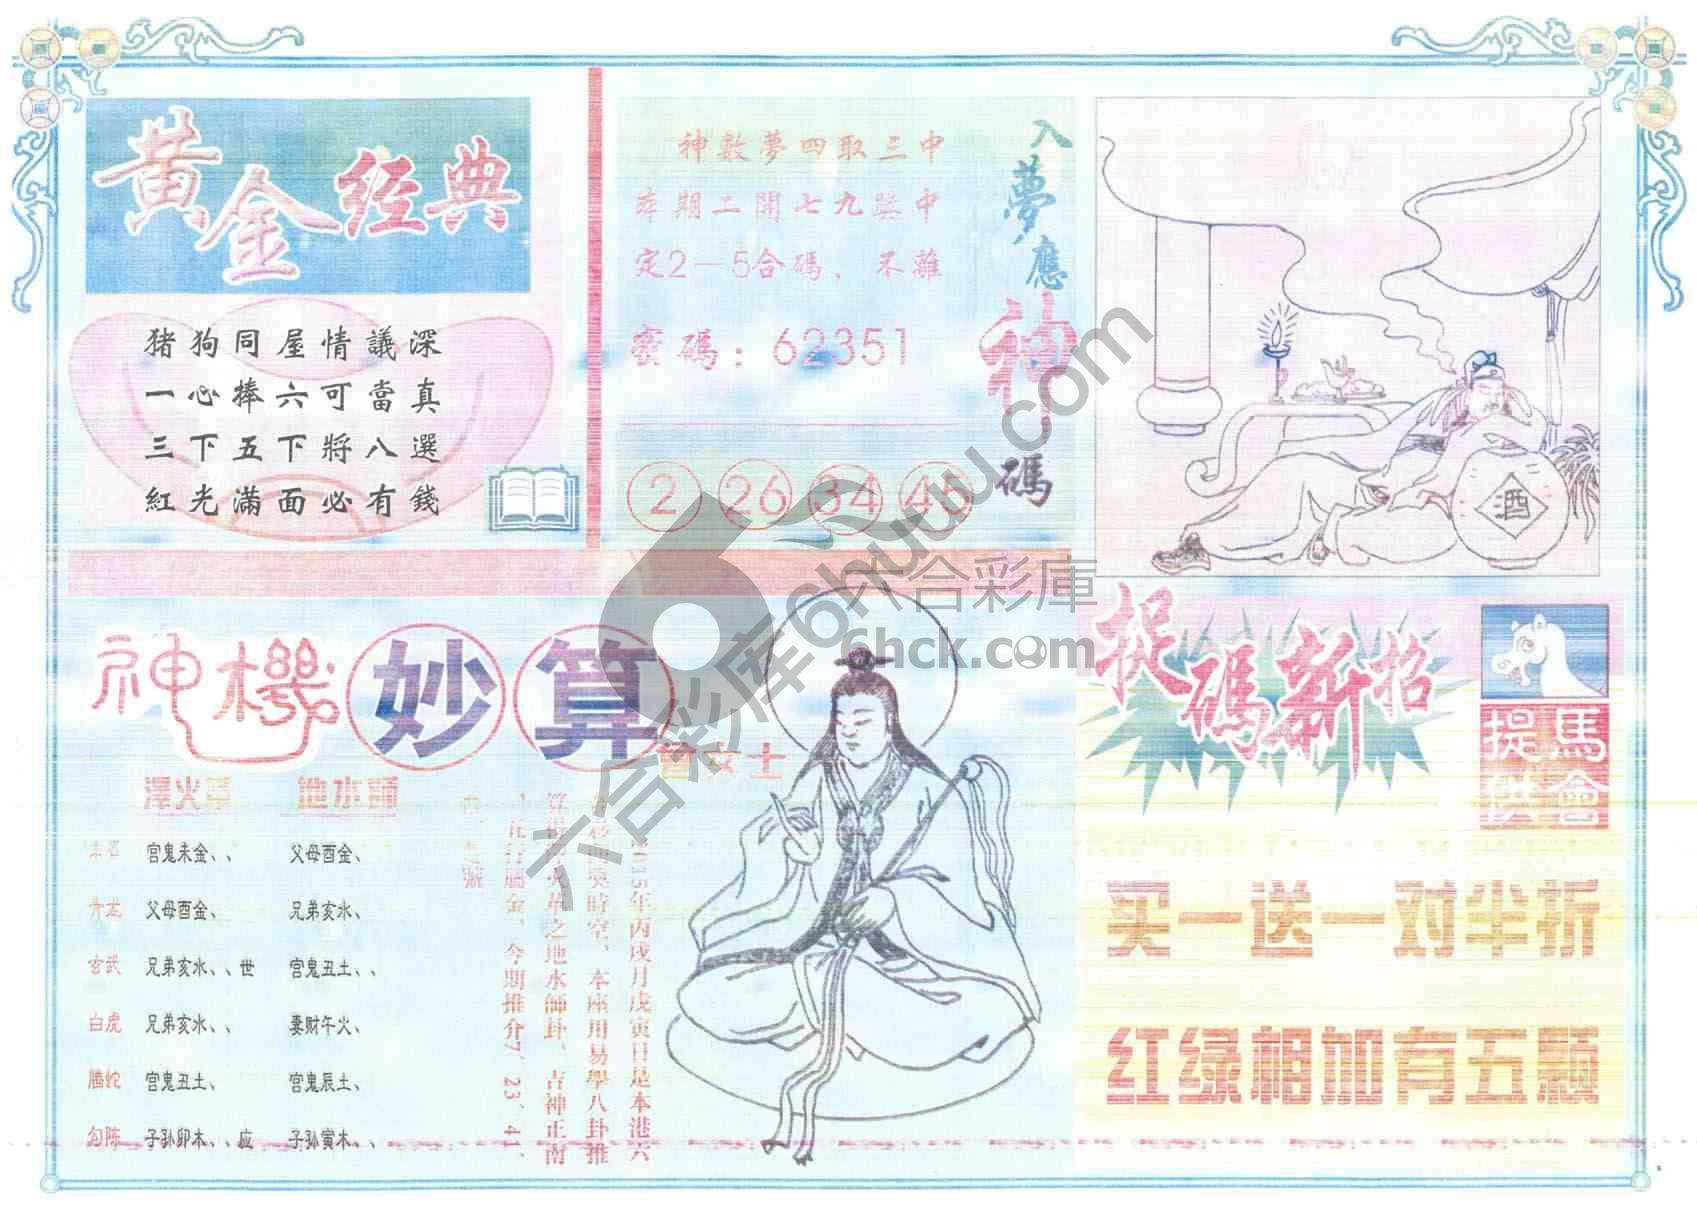 黄金经典
猪狗同屋情議深
一心棒六可當真
三下五下將八選
紅光滿面必有錢
神數夢四取三中
本期二開七九點中
定2－5合碼，不離
密碼：62351
2 26 34 45
入夢應神碼
酒
神機妙算
曾女士
澤火革
地水師
官鬼未金、、
父母酉金、
青龙
父母酉金、
兄弟亥水、
玄武
兄弟亥水、、世
官鬼丑土、、
白虎
兄弟亥水、、
妻财午火、
腾蛇
官鬼丑土、
官鬼辰土、
勾陈
子孙卯木、、应
子孙寅木、、
年丙戌月戊寅日是本港六
彩獎時空、本座用易學八卦推
算得火革之地水師卦、吉神正南
屬金、今期推介7、23、41、
號
捉碼新招
馬會
提供
买一送一对半折
红绿相加有五颗
六合彩庫
6hck.com
六合彩库6huwu.com